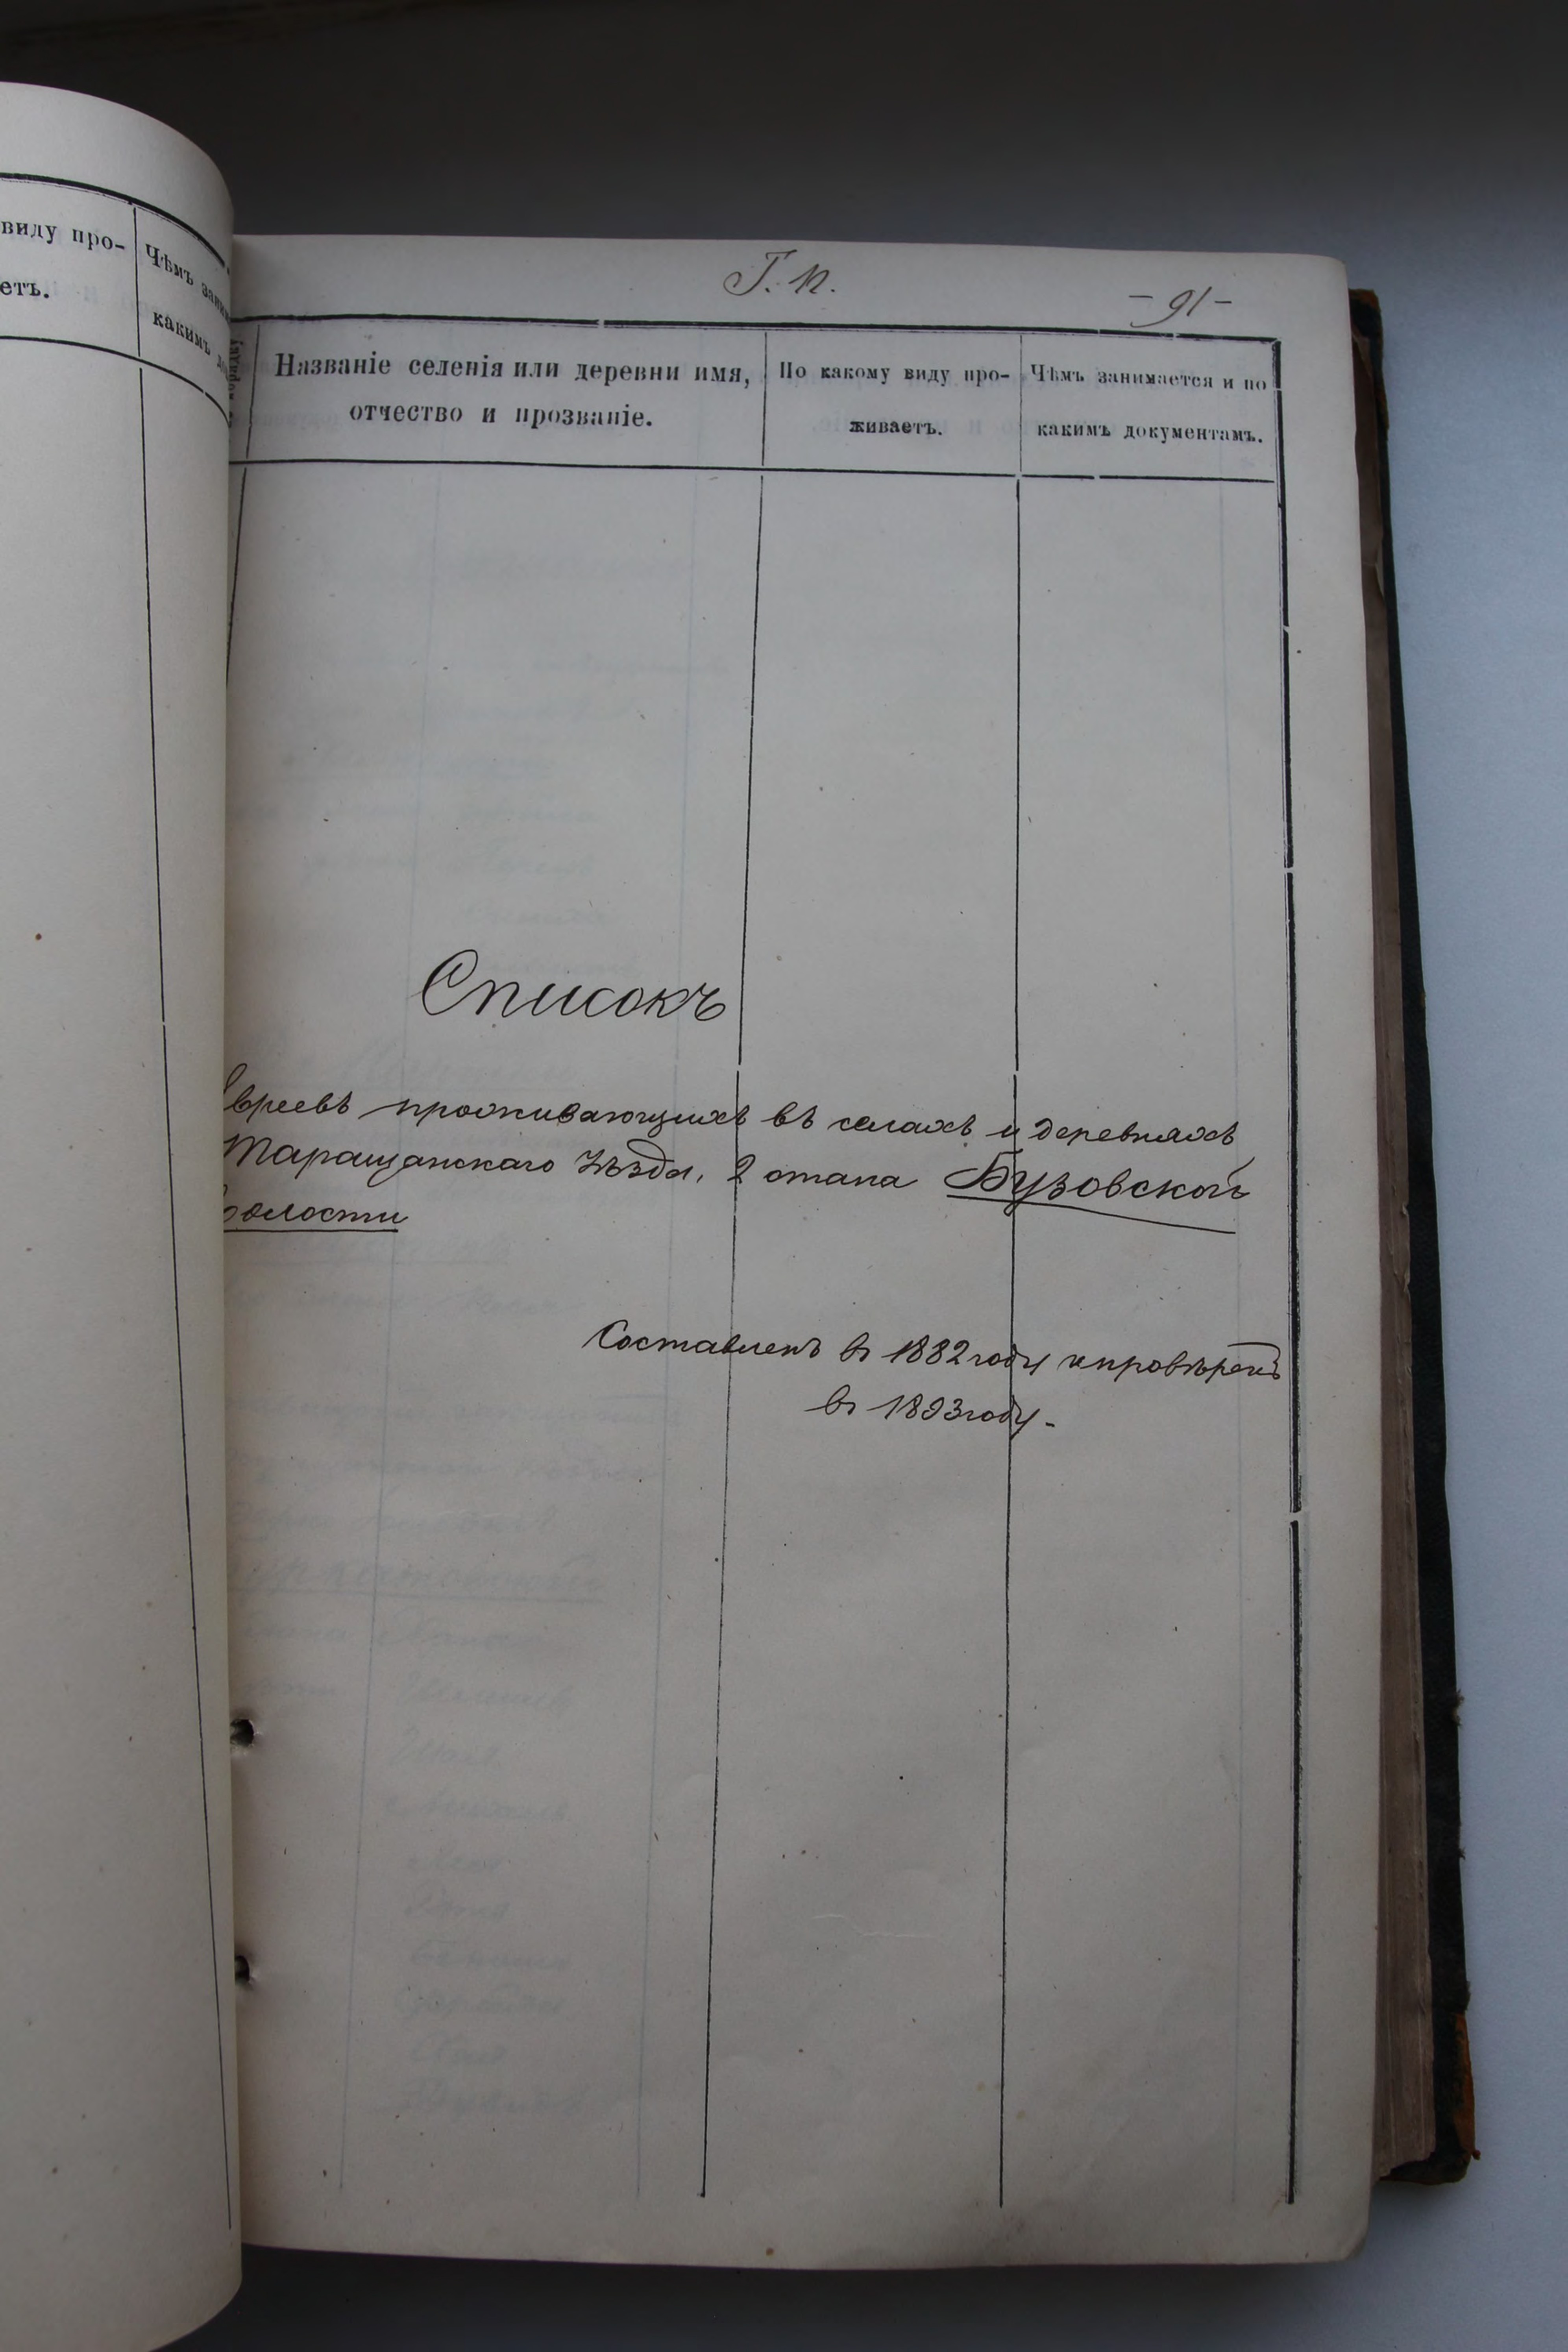 виду про-
етъ.
Чѣмъ
какимъ
Г. П.
-91-
Названіе селенія или деревни имя,
отчество и прозваніе.
По какому виду про-
живаетъ.
Чѣмъ занимается и по
какимъ документамъ.
Списокъ
Евреевъ проживающихъ въ селахъ и деревняхъ
Таращанскаго Уѣзда, 2 стана Бузовской
волости
Составленъ въ 1882 году и провѣренъ
въ 1893 году.-